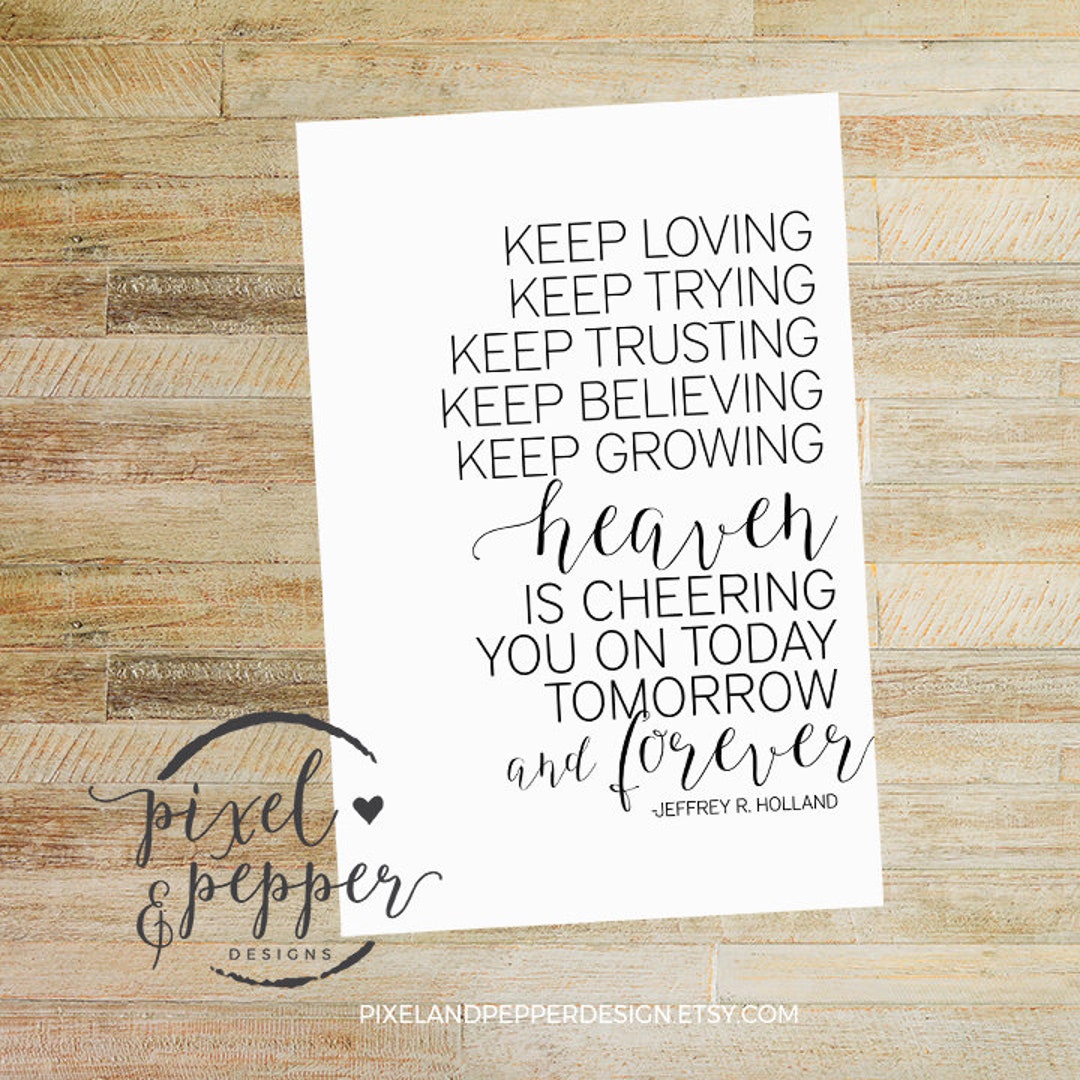 KEEP LOVING
KEEP TRYING
KEEP TRUSTING
KEEP BELIEVING
KEEP GROWING
heaven
IS CHEERING
YOU ON TODAY
TOMORROW
and forever
-JEFFREY R. HOLLAND
pixel
& pepper
DESIGNS
PIXELANDPEPPERDESIGN.ETSY.COM